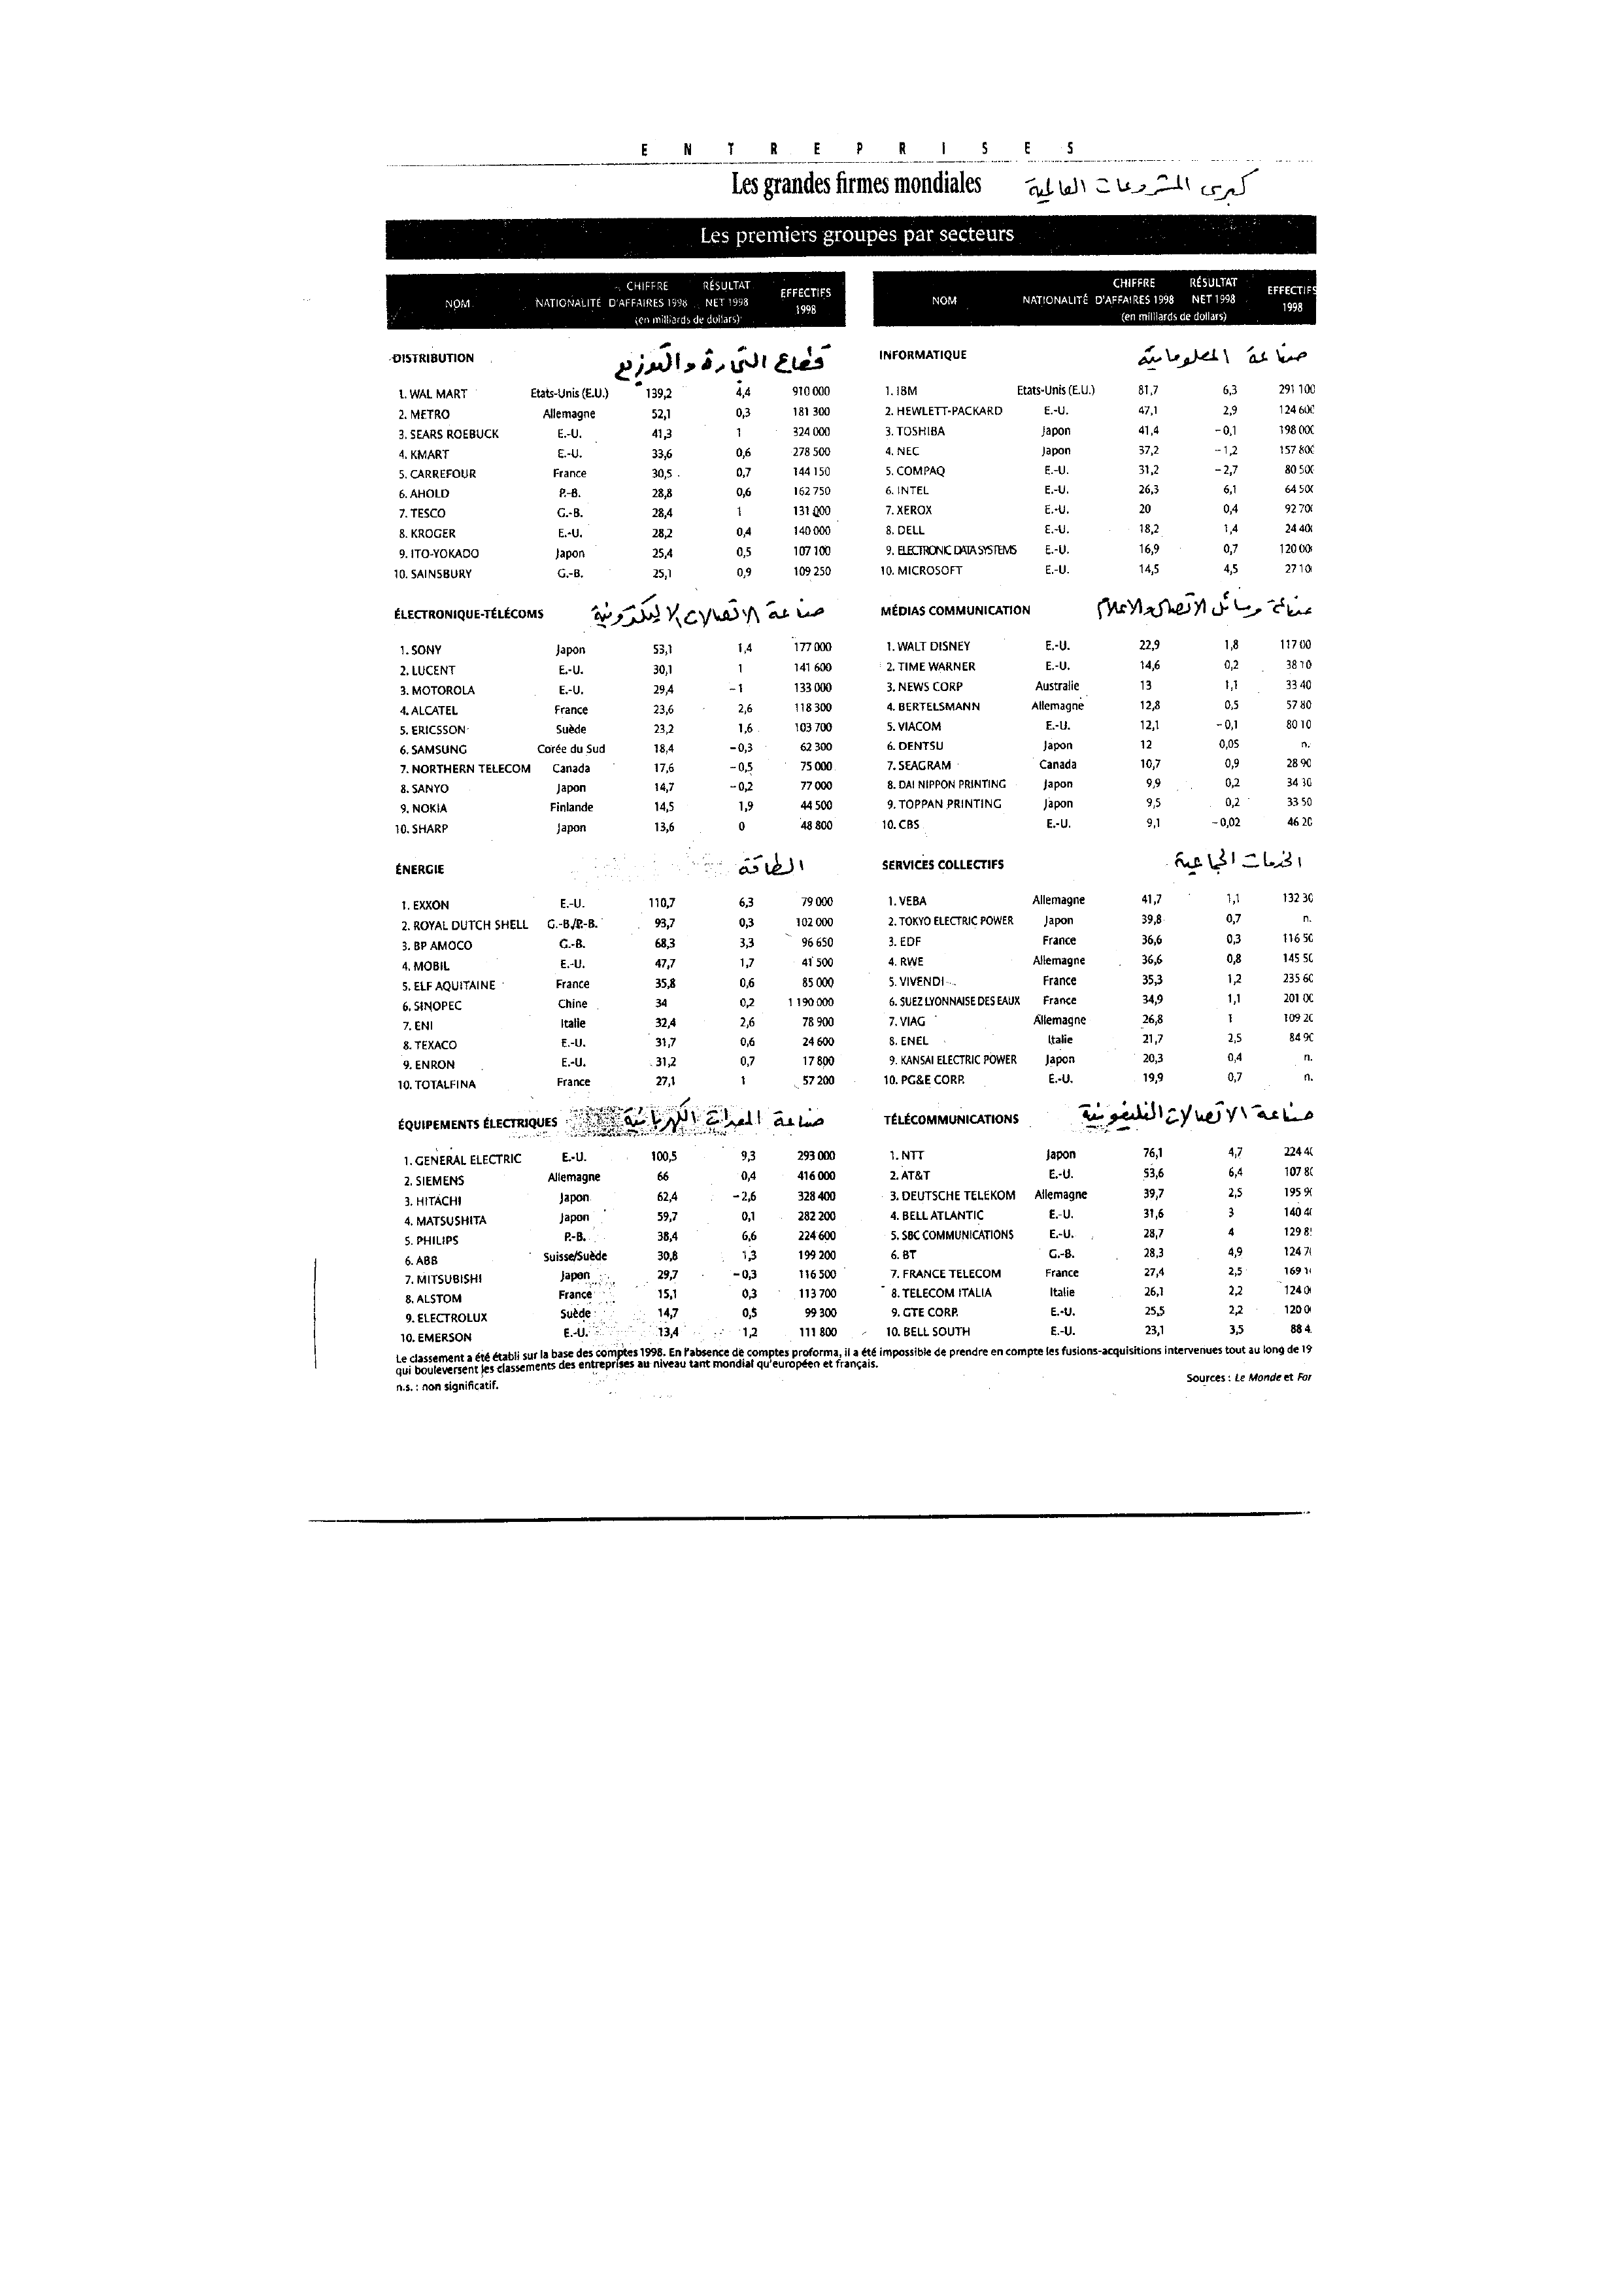 ENTREPRISES
Les grandes firmes mondiales كبرى المشروعات العالمية
Les premiers groupes par secteurs
NOM NATIONALITÉ CHIFFRE D'AFFAIRES 1998 RÉSULTAT NET 1998 (en milliards de dollars) EFFECTIFS 1998
DISTRIBUTION قطاع التجارة والتوزيع
1. WAL MART Etats-Unis (E.U.) 139,2 4,4 910 000
2. METRO Allemagne 52,1 0,3 181 300
3. SEARS ROEBUCK E.-U. 41,3 1 324 000
4. KMART E.-U. 33,6 0,6 278 500
5. CARREFOUR France 30,5 0,7 144 150
6. AHOLD P.-B. 28,8 0,6 162 750
7. TESCO G.-B. 28,4 1 131 000
8. KROGER E.-U. 28,2 0,4 140 000
9. ITO-YOKADO Japon 25,4 0,5 107 100
10. SAINSBURY G.-B. 25,1 0,9 109 250
ÉLECTRONIQUE-TÉLÉCOMS صناعة الاتصالات الاليكترونية
1. SONY Japon 53,1 1,4 177 000
2. LUCENT E.-U. 30,1 1 141 600
3. MOTOROLA E.-U. 29,4 –1 133 000
4. ALCATEL France 23,6 2,6 118 300
5. ERICSSON Suède 23,2 1,6 103 700
6. SAMSUNG Corée du Sud 18,4 –0,3 62 300
7. NORTHERN TELECOM Canada 17,6 –0,5 75 000
8. SANYO Japon 14,7 –0,2 77 000
9. NOKIA Finlande 14,5 1,9 44 500
10. SHARP Japon 13,6 0 48 800
ÉNERGIE الطاقة
1. EXXON E.-U. 110,7 6,3 79 000
2. ROYAL DUTCH SHELL G.-B./P.-B. 93,7 0,3 102 000
3. BP AMOCO G.-B. 68,3 3,3 96 650
4. MOBIL E.-U. 47,7 1,7 41 500
5. ELF AQUITAINE France 35,8 0,6 85 000
6. SINOPEC Chine 34 0,2 1 190 000
7. ENI Italie 32,4 2,6 78 900
8. TEXACO E.-U. 31,7 0,6 24 600
9. ENRON E.-U. 31,2 0,7 17 800
10. TOTALFINA France 27,1 1 57 200
ÉQUIPEMENTS ÉLECTRIQUES صناعة المعدات الكهربائية
1. GENERAL ELECTRIC E.-U. 100,5 9,3 293 000
2. SIEMENS Allemagne 66 0,4 416 000
3. HITACHI Japon 62,4 –2,6 328 400
4. MATSUSHITA Japon 59,7 0,1 282 200
5. PHILIPS P.-B. 38,4 6,6 224 600
6. ABB Suisse/Suède 30,8 1,3 199 200
7. MITSUBISHI Japon 29,7 –0,3 116 500
8. ALSTOM France 15,1 0,3 113 700
9. ELECTROLUX Suède 14,7 0,5 99 300
10. EMERSON E.-U. 13,4 1,2 111 800
NOM NATIONALITÉ CHIFFRE D'AFFAIRES 1998 RÉSULTAT NET 1998 (en milliards de dollars) EFFECTIFS 1998
INFORMATIQUE صناعة المعلوماتية
1. IBM Etats-Unis (E.U.) 81,7 6,3 291 100
2. HEWLETT-PACKARD E.-U. 47,1 2,9 124 600
3. TOSHIBA Japon 41,4 –0,1 198 000
4. NEC Japon 37,2 –1,2 157 800
5. COMPAQ E.-U. 31,2 –2,7 80 500
6. INTEL E.-U. 26,3 6,1 64 500
7. XEROX E.-U. 20 0,4 92 70
8. DELL E.-U. 18,2 1,4 24 40
9. ELECTRONIC DATA SYSTEMS E.-U. 16,9 0,7 120 00
10. MICROSOFT E.-U. 14,5 4,5 27 10
MÉDIAS COMMUNICATION صناعة وسائل الاتصال والاعلام
1. WALT DISNEY E.-U. 22,9 1,8 117 00
2. TIME WARNER E.-U. 14,6 0,2 38 10
3. NEWS CORP Australie 13 1,1 33 40
4. BERTELSMANN Allemagne 12,8 0,5 57 80
5. VIACOM E.-U. 12,1 –0,1 80 10
6. DENTSU Japon 12 0,05 n.
7. SEAGRAM Canada 10,7 0,9 28 90
8. DAI NIPPON PRINTING Japon 9,9 0,2 34 30
9. TOPPAN PRINTING Japon 9,5 0,2 33 50
10. CBS E.-U. 9,1 –0,02 46 20
SERVICES COLLECTIFS الخدمات الجماعية
1. VEBA Allemagne 41,7 1,1 132 30
2. TOKYO ELECTRIC POWER Japon 39,8 0,7 n.
3. EDF France 36,6 0,3 116 50
4. RWE Allemagne 36,6 0,8 145 50
5. VIVENDI France 35,3 1,2 235 60
6. SUEZ LYONNAISE DES EAUX France 34,9 1,1 201 00
7. VIAG Allemagne 26,8 1 109 20
8. ENEL Italie 21,7 2,5 84 90
9. KANSAI ELECTRIC POWER Japon 20,3 0,4 n.
10. PG&E CORP. E.-U. 19,9 0,7 n.
TÉLÉCOMMUNICATIONS صناعة الاتصالات التليفونية
1. NTT Japon 76,1 4,7 224 4
2. AT&T E.-U. 53,6 6,4 107 8
3. DEUTSCHE TELEKOM Allemagne 39,7 2,5 195 9
4. BELL ATLANTIC E.-U. 31,6 3 140 4
5. SBC COMMUNICATIONS E.-U. 28,7 4 129 8
6. BT G.-B. 28,3 4,9 124 7
7. FRANCE TELECOM France 27,4 2,5 169 1
8. TELECOM ITALIA Italie 26,1 2,2 124 0
9. GTE CORP. E.-U. 25,5 2,2 120 0
10. BELL SOUTH E.-U. 23,1 3,5 88 4
Le classement a été établi sur la base des comptes 1998. En l'absence de comptes proforma, il a été impossible de prendre en compte les fusions-acquisitions intervenues tout au long de 19
qui bouleversent les classements des entreprises au niveau tant mondial qu'européen et français.
n.s. : non significatif.
Sources : Le Monde et For